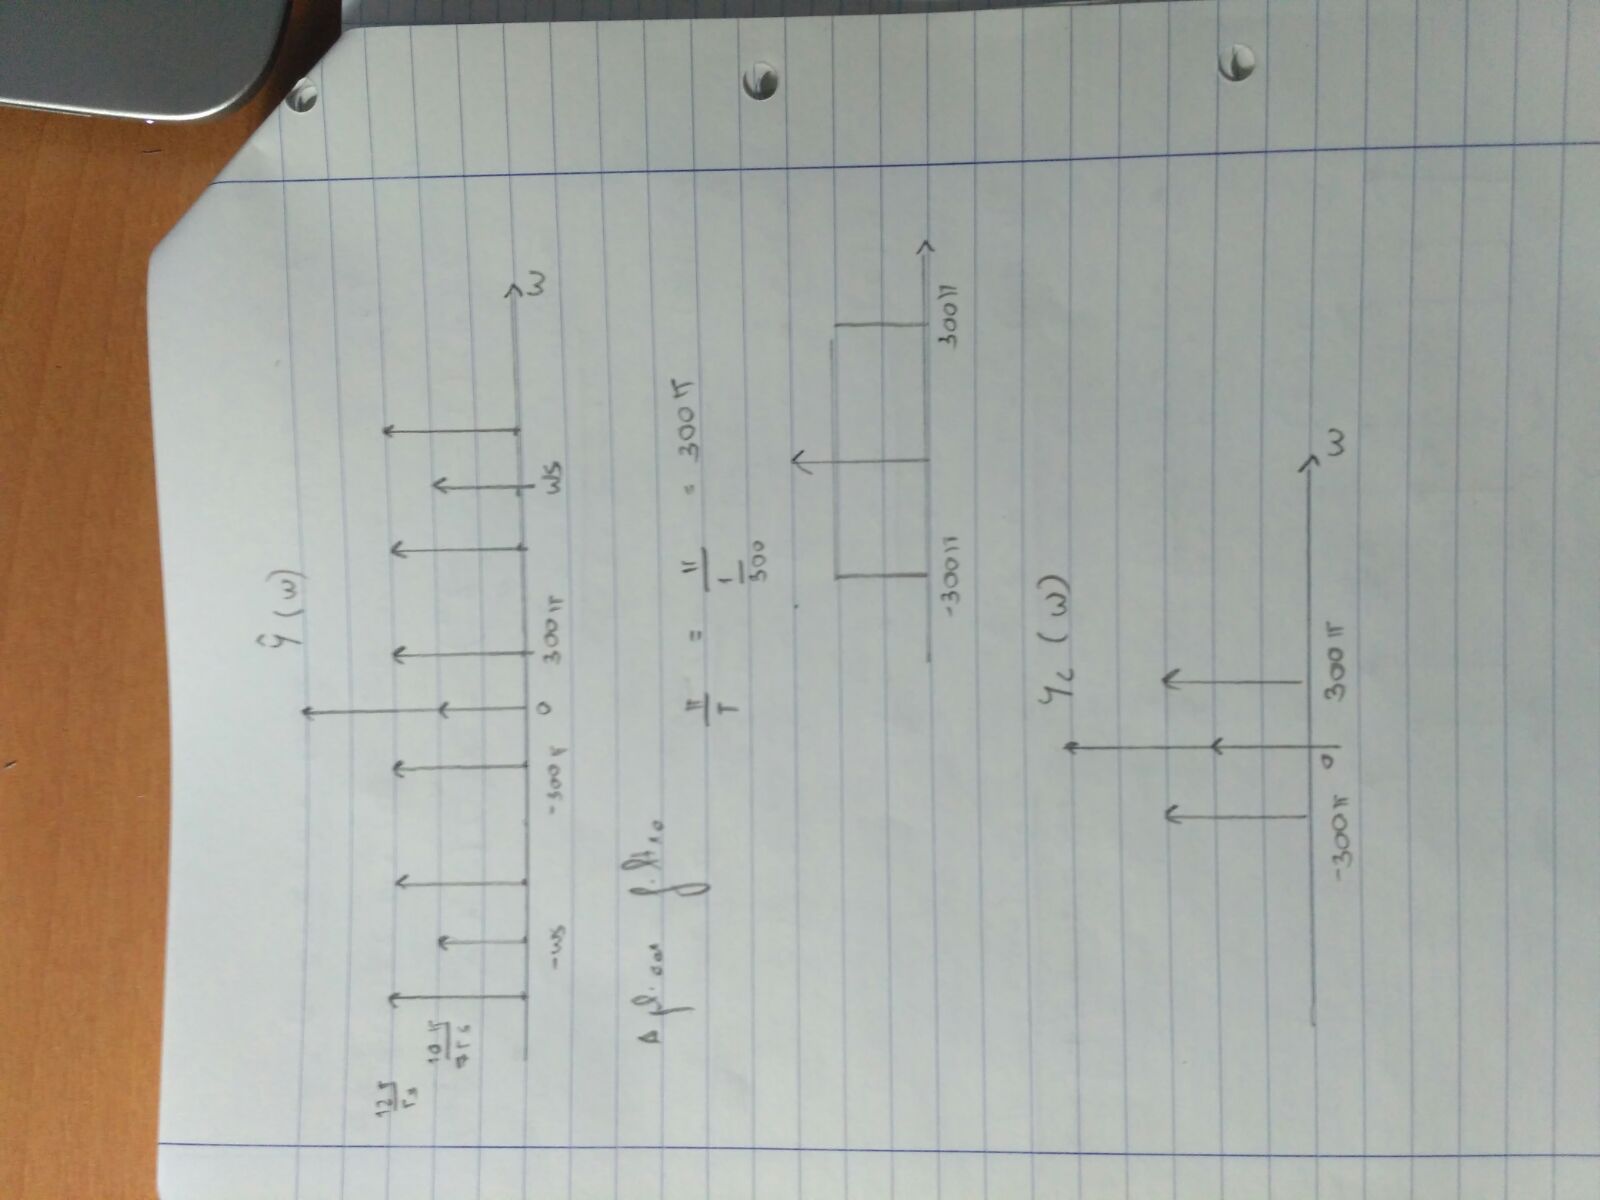 ŷ(ω)
12π/Ts
10π/Ts
-ωs -300π 0 300π ωs ω
Aplicar filtro
π/T = π/(1/300) = 300π
-300π 300π
yc(ω)
-300π 0 300π ω